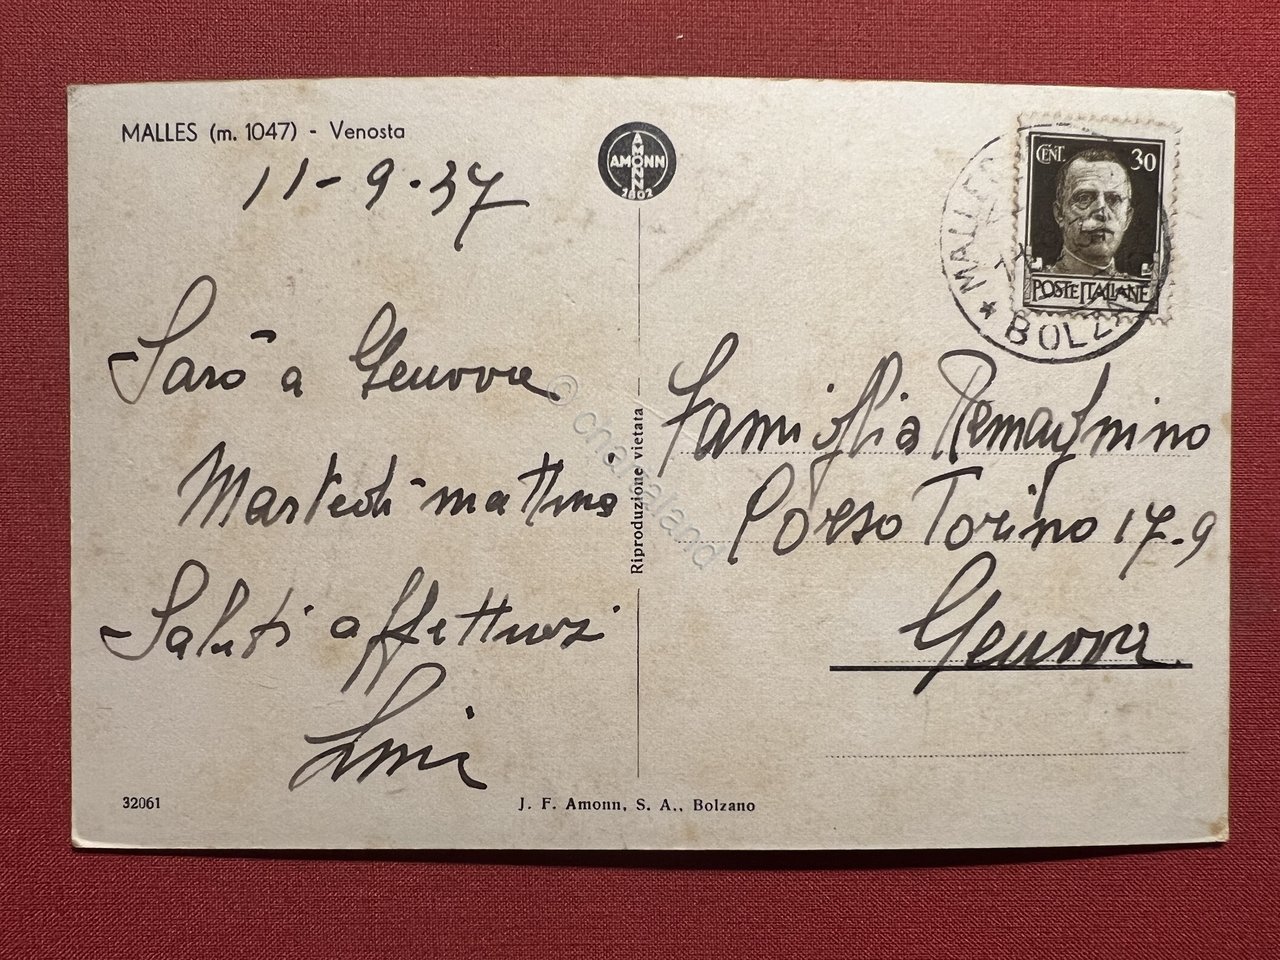 MALLES (m. 1047) - Venosta
11-9.37
Sarò a Genova
Martedì mattina
Saluti affettuosi
AMONN
1802
Riproduzione vietata
CENT. 30
POSTE ITALIANE
MALLES
BOLZ
Famiglia Remagnino
Corso Torino 17-9
Genova
32061
J. F. Amonn, S. A., Bolzano
© charaland